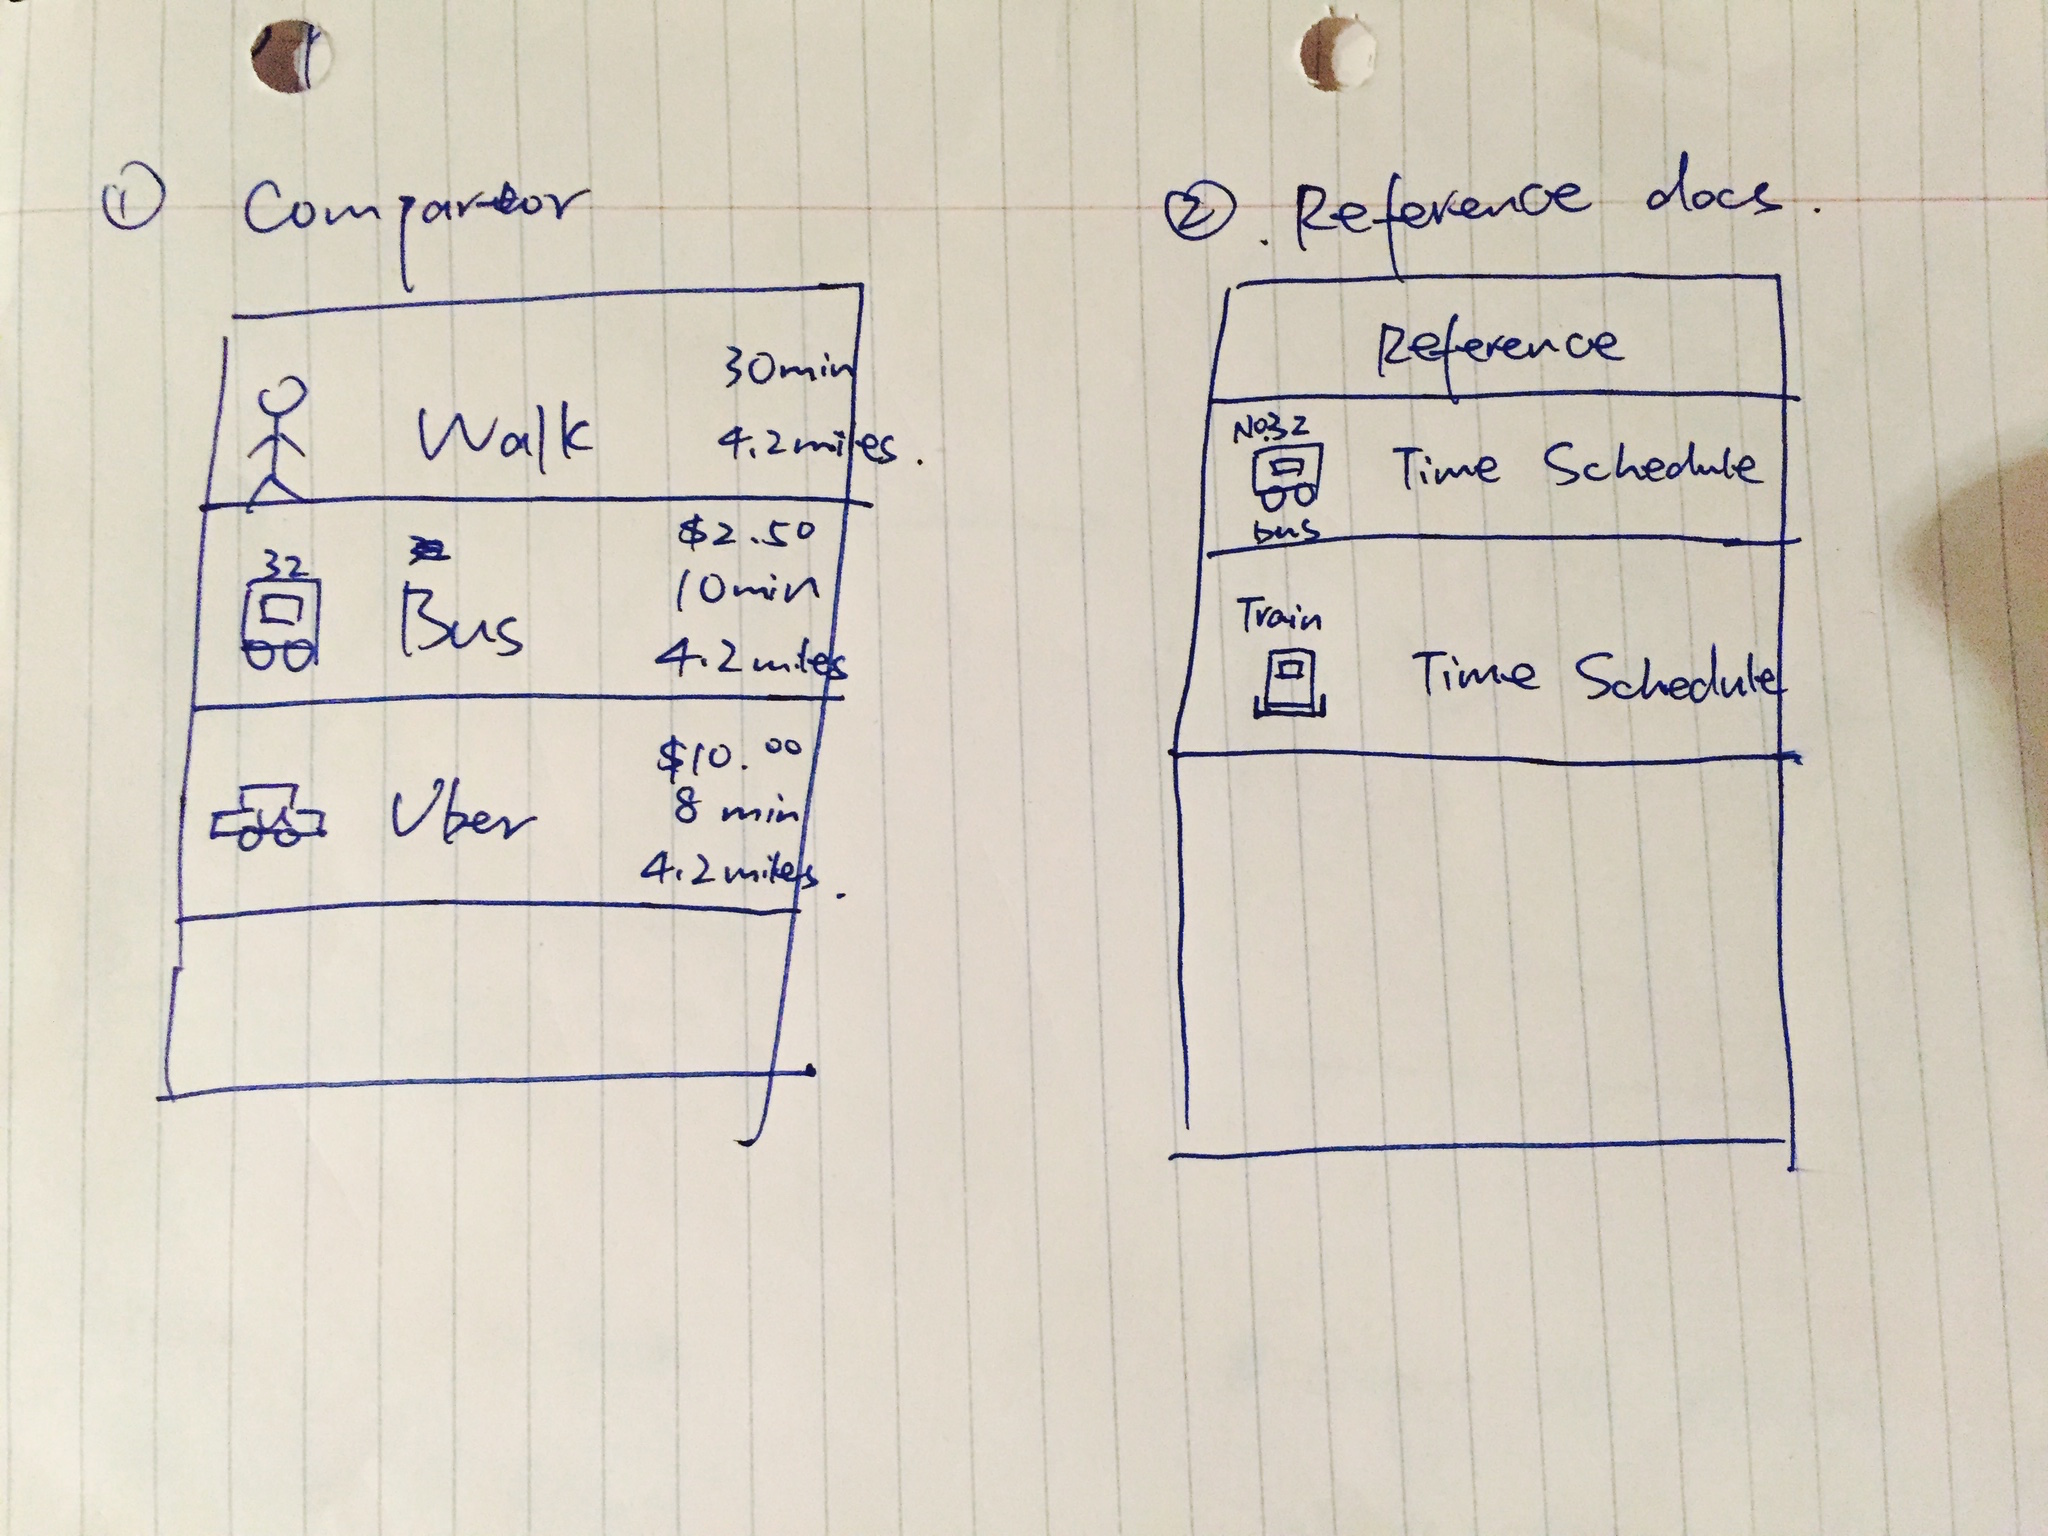 ① Comparator
Walk
30min
4.2miles.
32
Bus
$2.50
10min
4.2miles
Uber
$10.00
8 min
4.2miles.
②. Reference docs.
Reference
No.32
Bus
Time Schedule
Train
Time Schedule